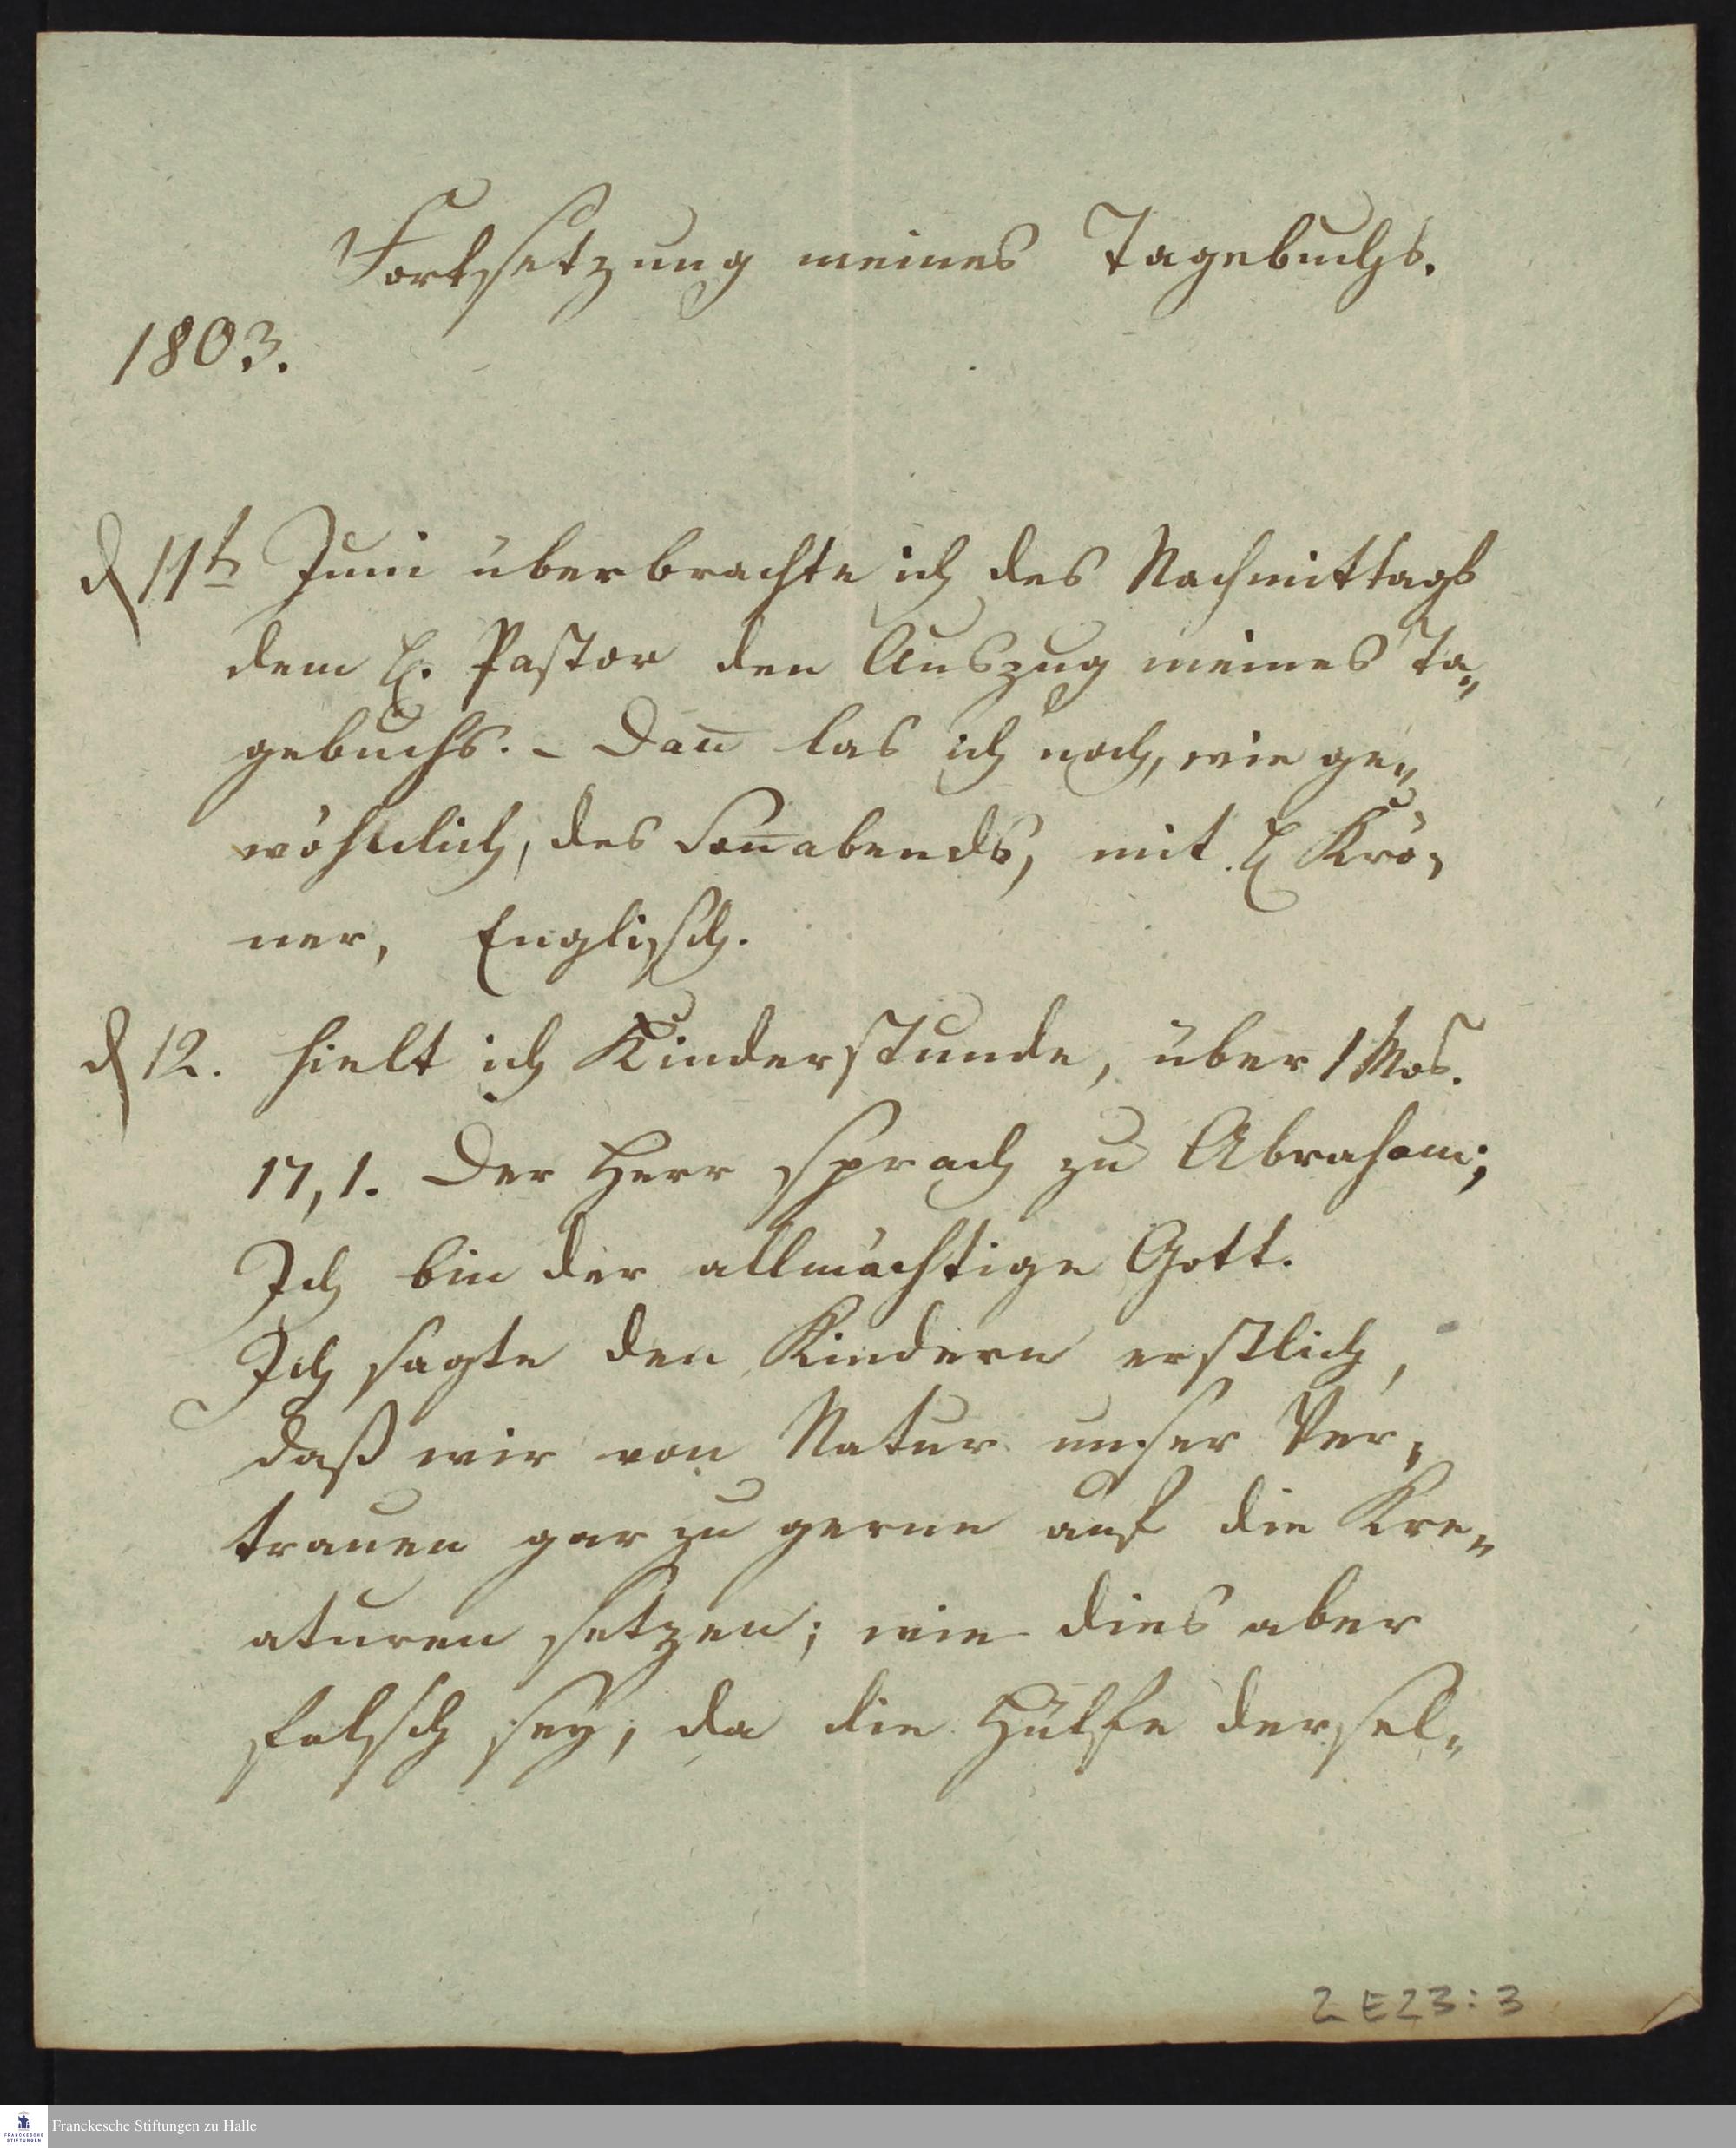 Fortsetzung meines Tagebuchs.
1803.
d 11t Juni überbrachte ich des Nachmittags
dem H. Pastor den Auszug meines Ta„
gebuchs. – Dan̄ las ich noch, wie ge„
wöhnlich, des Son̄abends, mit H Krö„
ner, Englisch.
d 12. hielt ich Kinderstunde, über 1 Mos.
17, 1. Der Herr sprach zu Abraham;
Ich bin der allmächtige Gott.
Ich sagte den Kindern erstlich,
daß wir von Natur unser Ver„
trauen gar zu gerne auf die Kre„
aturen setzen; wie dies aber
falsch sey, da die Hülfe dersel„
2 E23:3
Franckesche Stiftungen zu Halle
FRANCKESCHE
STIFTUNGEN